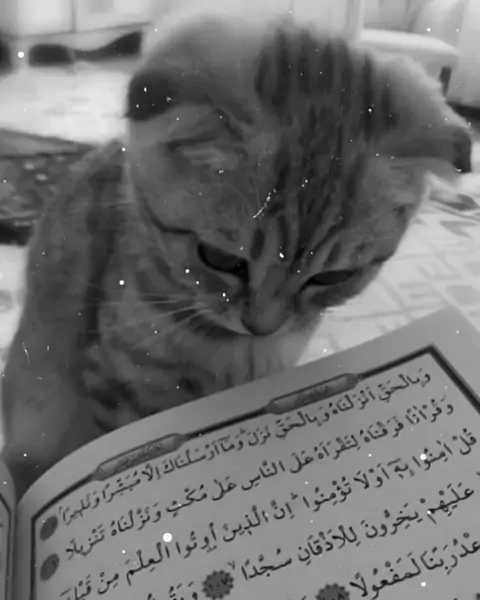 وَبِالْحَقِّ اَنْزَلْنَاهُ وَبِالْحَقِّ نَزَلَ وَمَٓا اَرْسَلْنَاكَ اِلَّا مُبَشِّرًا وَنَذِيرًا
وَقُرْاٰنًا فَرَقْنَاهُ لِتَقْرَاَهُ عَلَى النَّاسِ عَلٰى مُكْثٍ وَنَزَّلْنَاهُ تَنْزِيلًا
قُلْ اٰمِنُوا بِهٖٓ اَوْ لَا تُؤْمِنُوا اِنَّ الَّذِينَ اُوتُوا الْعِلْمَ مِنْ قَبْلِهٖٓ
عَلَيْهِمْ يَخِرُّونَ لِلْاَذْقَانِ سُجَّدًا
وَعْدُ رَبِّنَا لَمَفْعُولًا